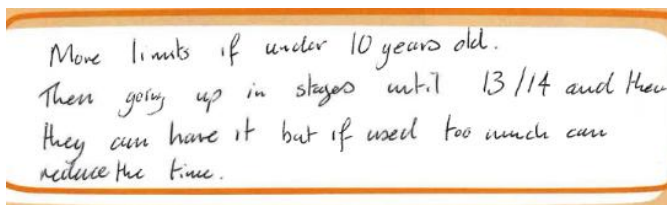 More limits if under 10 years old.
Then going up in stages until 13/14 and then
they can have it but if used too much can
reduce the time.